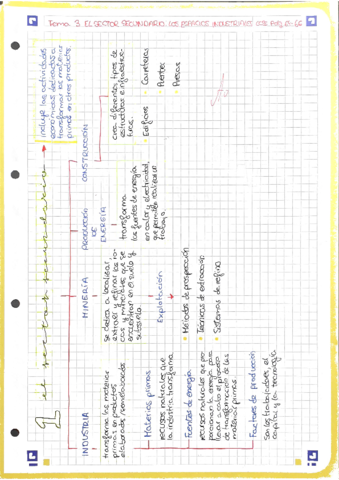 Tema 3. EL SECTOR SECUNDARIO. LOS ESPACIOS INDUSTRIALES
1 el sector secundario → incluye las actividades
económicas dedicadas a
transformar las materias
primas en otros productos.
INDUSTRIA
transforma las materias
primas en productos
elaborados/semielaborados
Materias primas
recursos naturales que
la industria transforma.
Fuentes de energía
recursos naturales que pro-
porcionan la energía para
llevar a cabo el proceso
de transformación de las
materias primas.
Factores de producción
Son los trabajadores, el
capital y la tecnología
MINERÍA
se dedica a localizar,
extraer y refinar las ro-
cas y minerales que se
encuentran en el suelo y
subsuelo
Explotación
• Métodos de prospección
• Técnicas de extracción
• Sistemas de refino
PRODUCCIÓN
DE
ENERGÍA
transforma
las fuentes de energía
en calor y electricidad,
que permiten realizar un
trabajo.
CONSTRUCCIÓN
crea diferentes tipos de
estructuras e infraestruc-
turas.
• Edificios
• Carreteras
• Puentes
• Presas